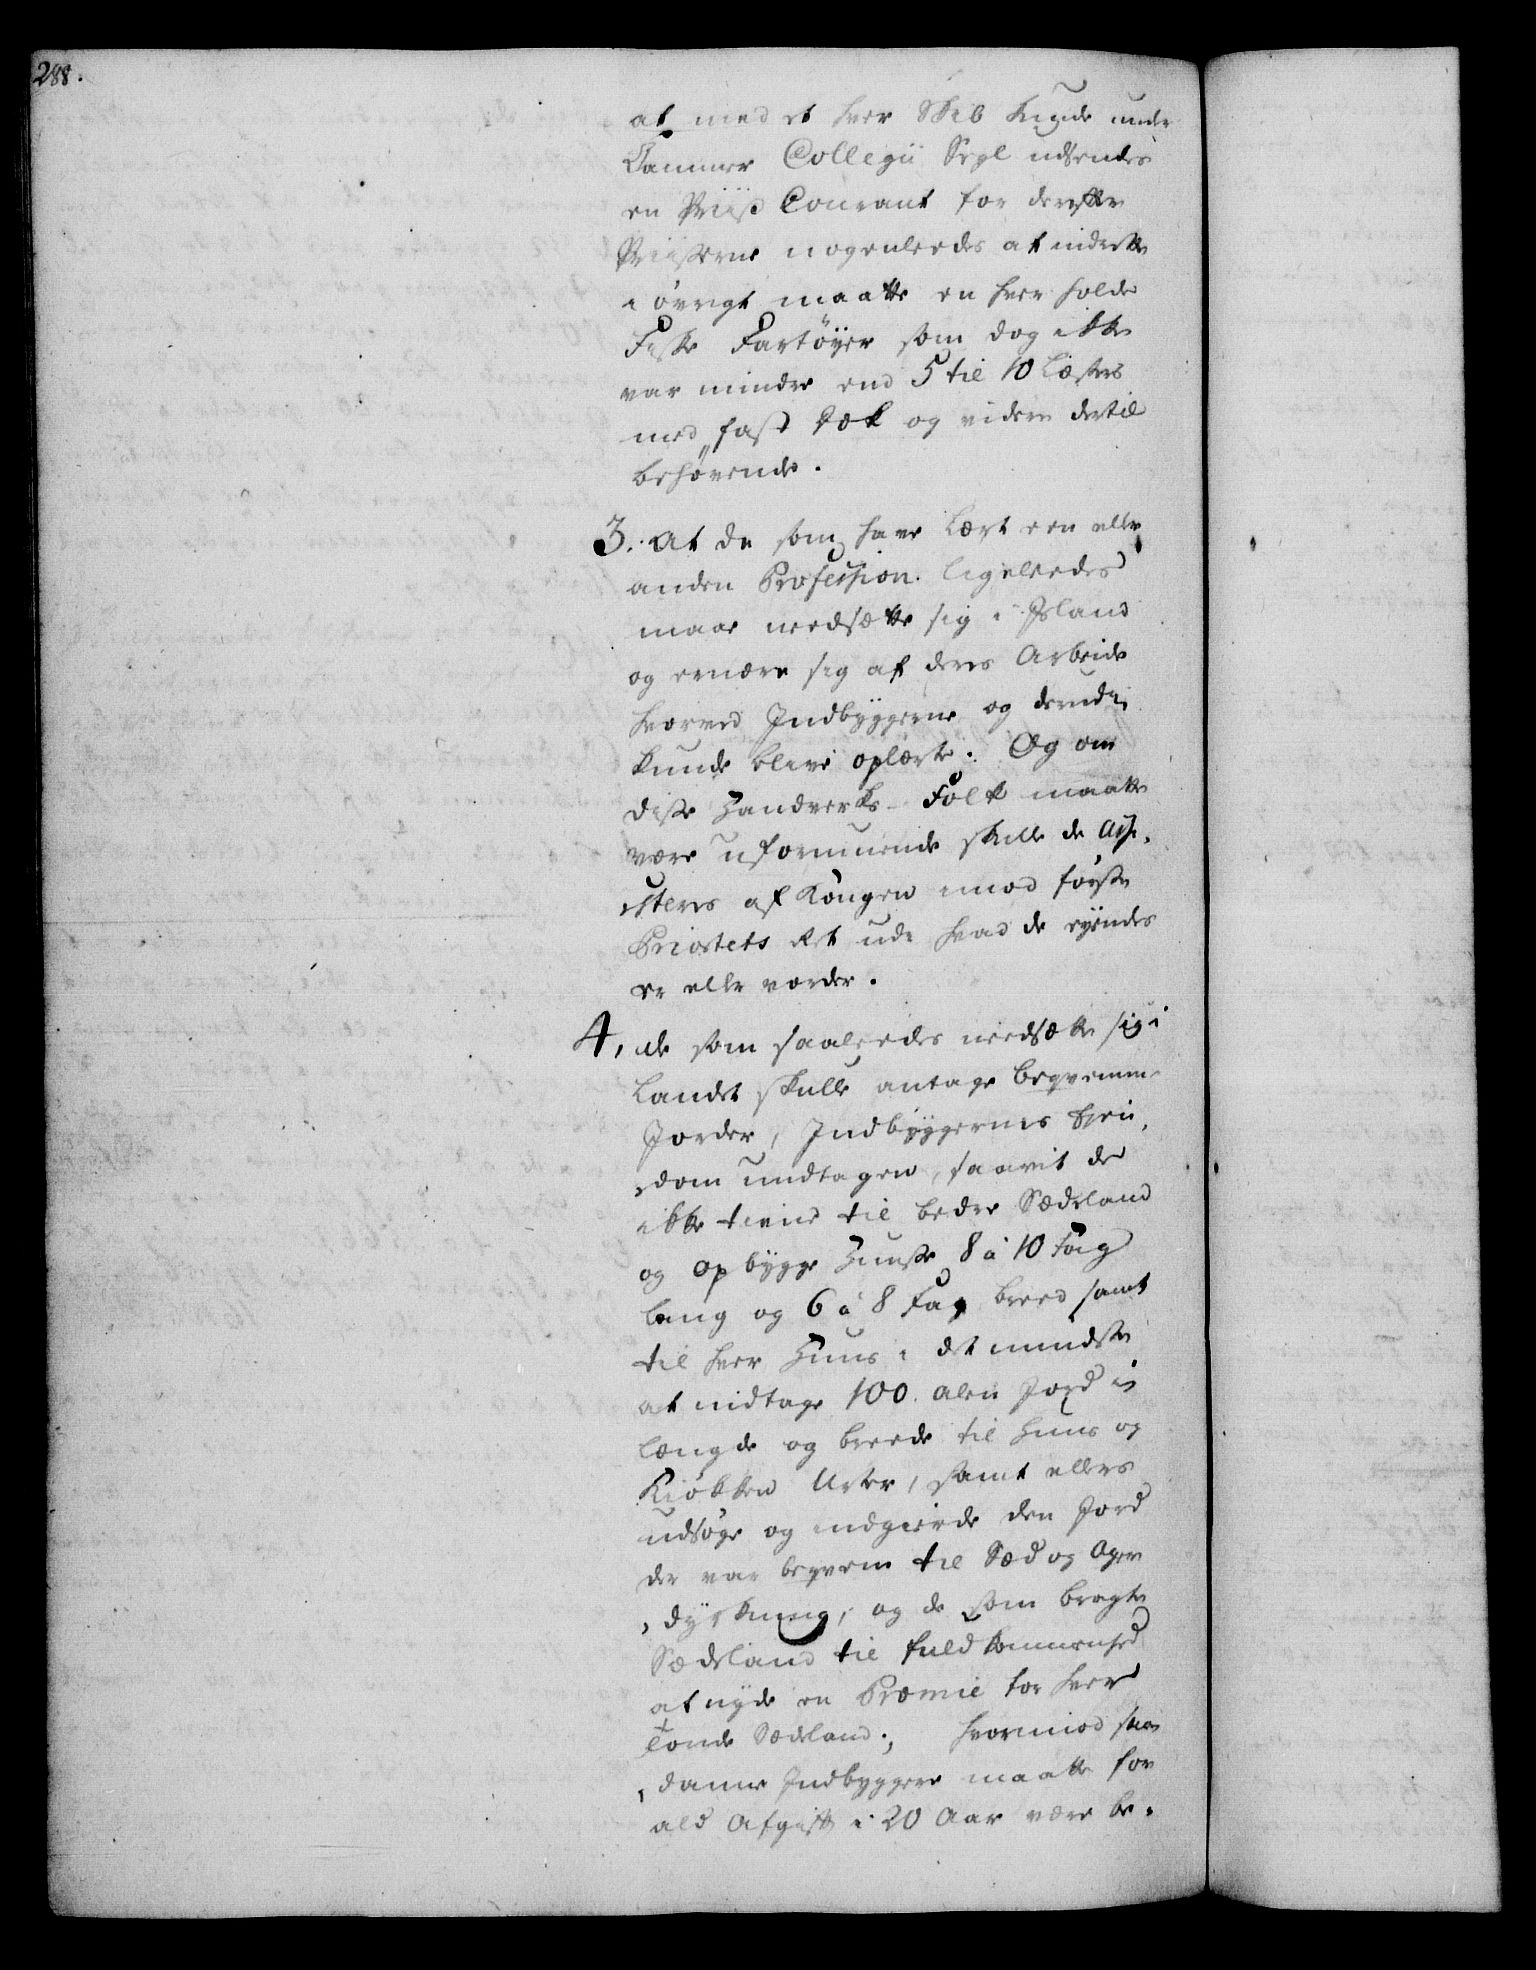 288.
at med et hver Skib kunde under
Cammer Collegii Segl udsendes
en Priis Courant for derefter
Priiserne nogenleedes at indrette
i øvrigt maatte en hver holde
Fiske Fartøyer som dog ikke
var mindre end 5 til 10 Læsters
med fast Dæk og videre dertil
behøvende.
3. At de som have Lært een eller
anden Profession ligeleedes
maae nedsætte sig i Island
og ernære sig af deres Arbeide
hvorved Indbyggerne og derudi
kunde blive oplærte. Og om
disse Handverks-Folk maatte
være uformuende skulle de Assi-
steres af Kongen imod første
Prioritets Ret udi hvad de eyendes
er eller vorder.
4, de som saaleedes nedsætte sig i
Landet skulle antage beqvemme
Jorder, Indbyggernes Eien-
dom undtagen, saavit de
ikke tiene til bedre Sædeland
og opbygge Huuse 8 á 10 Fag
lang og 6 á 8 Fag breed samt
til hver Huus i det mindste
at indtage 100 alen Jord i
længde og breede til Huus og
Kiøkken Urter, samt ellers
udsøge og indgierde den Jord
der var beqvem til Sæd og Ager
dyrkning, og de som bragte
Sædeland til fuldkommenhed
at nyde en Præmie for hver
Tønde Sædeland; hvorimod saa
danne Indbyggere maatte for
ald Afgift i 20 Aar være be-